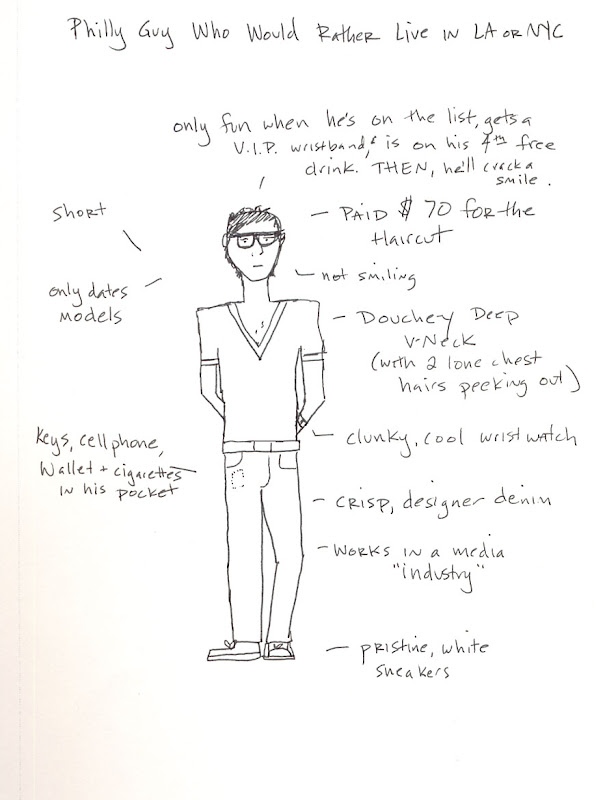 Philly Guy Who Would Rather Live in LA or NYC
only fun when he's on the list, gets a
V.I.P. wristband, & is on his 4th free
drink. THEN, he'll crack a
smile.
short
PAID $70 for the
Haircut
not smiling
only dates
models
Douchey Deep
V-Neck
(with 2 lone chest
hairs peeking out)
Keys, cell phone,
Wallet + cigarettes
in his pocket
clunky, cool wrist watch
crisp, designer denim
Works in a media
"industry"
pristine, white
sneakers